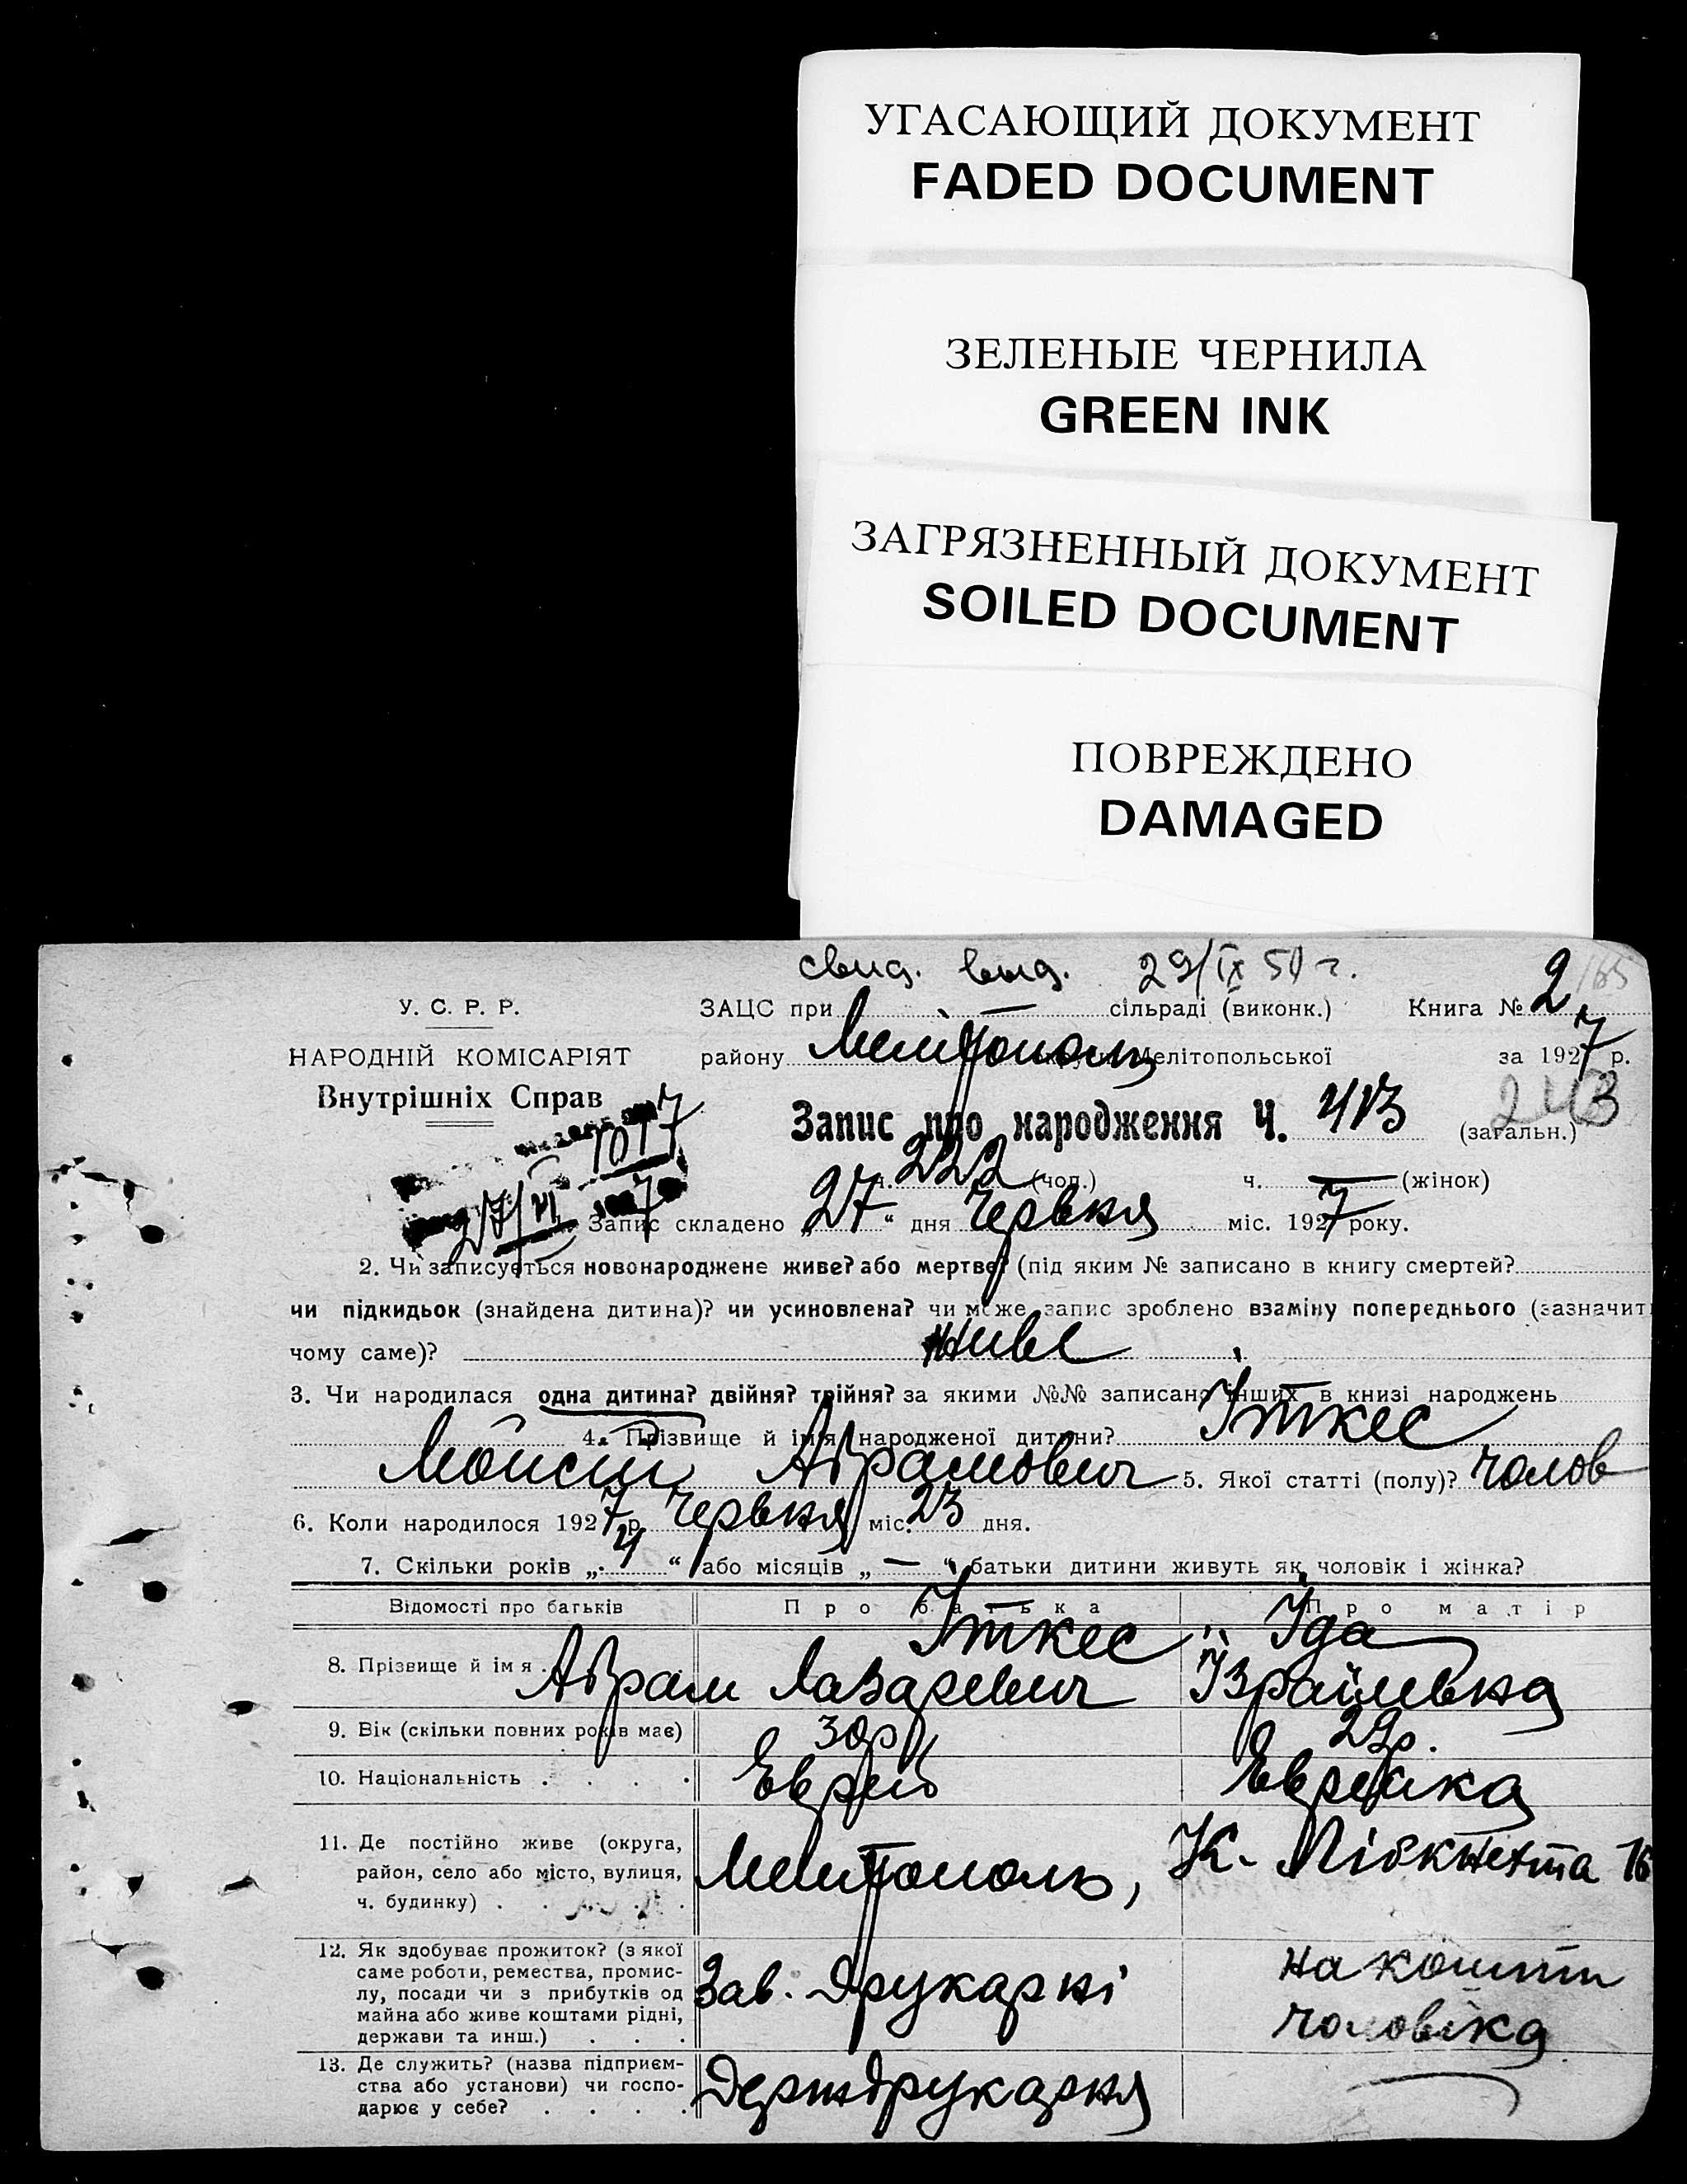 УГАСАЮЩИЙ ДОКУМЕНТ
FADED DOCUMENT
ЗЕЛЕНЫЕ ЧЕРНИЛА
GREEN INK
ЗАГРЯЗНЕННЫЙ ДОКУМЕНТ
SOILED DOCUMENT
ПОВРЕЖДЕНО
DAMAGED
свид. выд. 29/IX 51 г.
У. С. Р. Р.
НАРОДНІЙ КОМІСАРІЯТ
Внутрішніх Справ
ЗАЦС при — сільраді (виконк.) Книга № 2
району Мелітополь Мелітопольської за 1927 р.
243
Запис про народження Ч. 413 (загальн.)
ч. 222 (чол.) ч. — (жінок)
1017
27/VI 1927
Запис складено „27“ дня Червня міс. 1927 року.
2. Чи записується новонароджене живе? або мертве? (під яким № записано в книгу смертей?
чи підкидьок (знайдена дитина)? чи усиновлена? чи може запис зроблено взаміну попереднього (зазначит
чому саме)? живе
3. Чи народилася одна дитина? двійня? трійня? за якими №№ записано інших в книзі народжень
4. Прізвище й ім'я народженої дитини? Іткес
Мойсій Абрамович 5. Якої статті (полу)? чолов
6. Коли народилося 1927 р. Червня міс. 23 дня.
7. Скільки років „4“ або місяців „—“ батьки дитини живуть як чоловік і жінка?
Відомості про батьків Про батька Про матір
8. Прізвище й імя . Іткес Абрам Лазаревич Іда Ізраїлевна
9. Вік (скільки повних років має) 30р 29р.
10. Національність . . . . Еврей Еврейка
11. Де постійно живе (округа,
район, село або місто, вулиця,
ч. будинку) . . . . . Мелітополь, К. Лібкнехта 16
12. Як здобуває прожиток? (з якої
саме роботи, ремества, промис-
лу, посади чи з прибутків од
майна або живе коштами рідні,
держави та инш.) . . . Зав. друкарні на кошти чоловіка
13. Де служить? (назва підприєм-
ства або установи) чи госпо-
дарює у себе? . . . . Держдрукарня